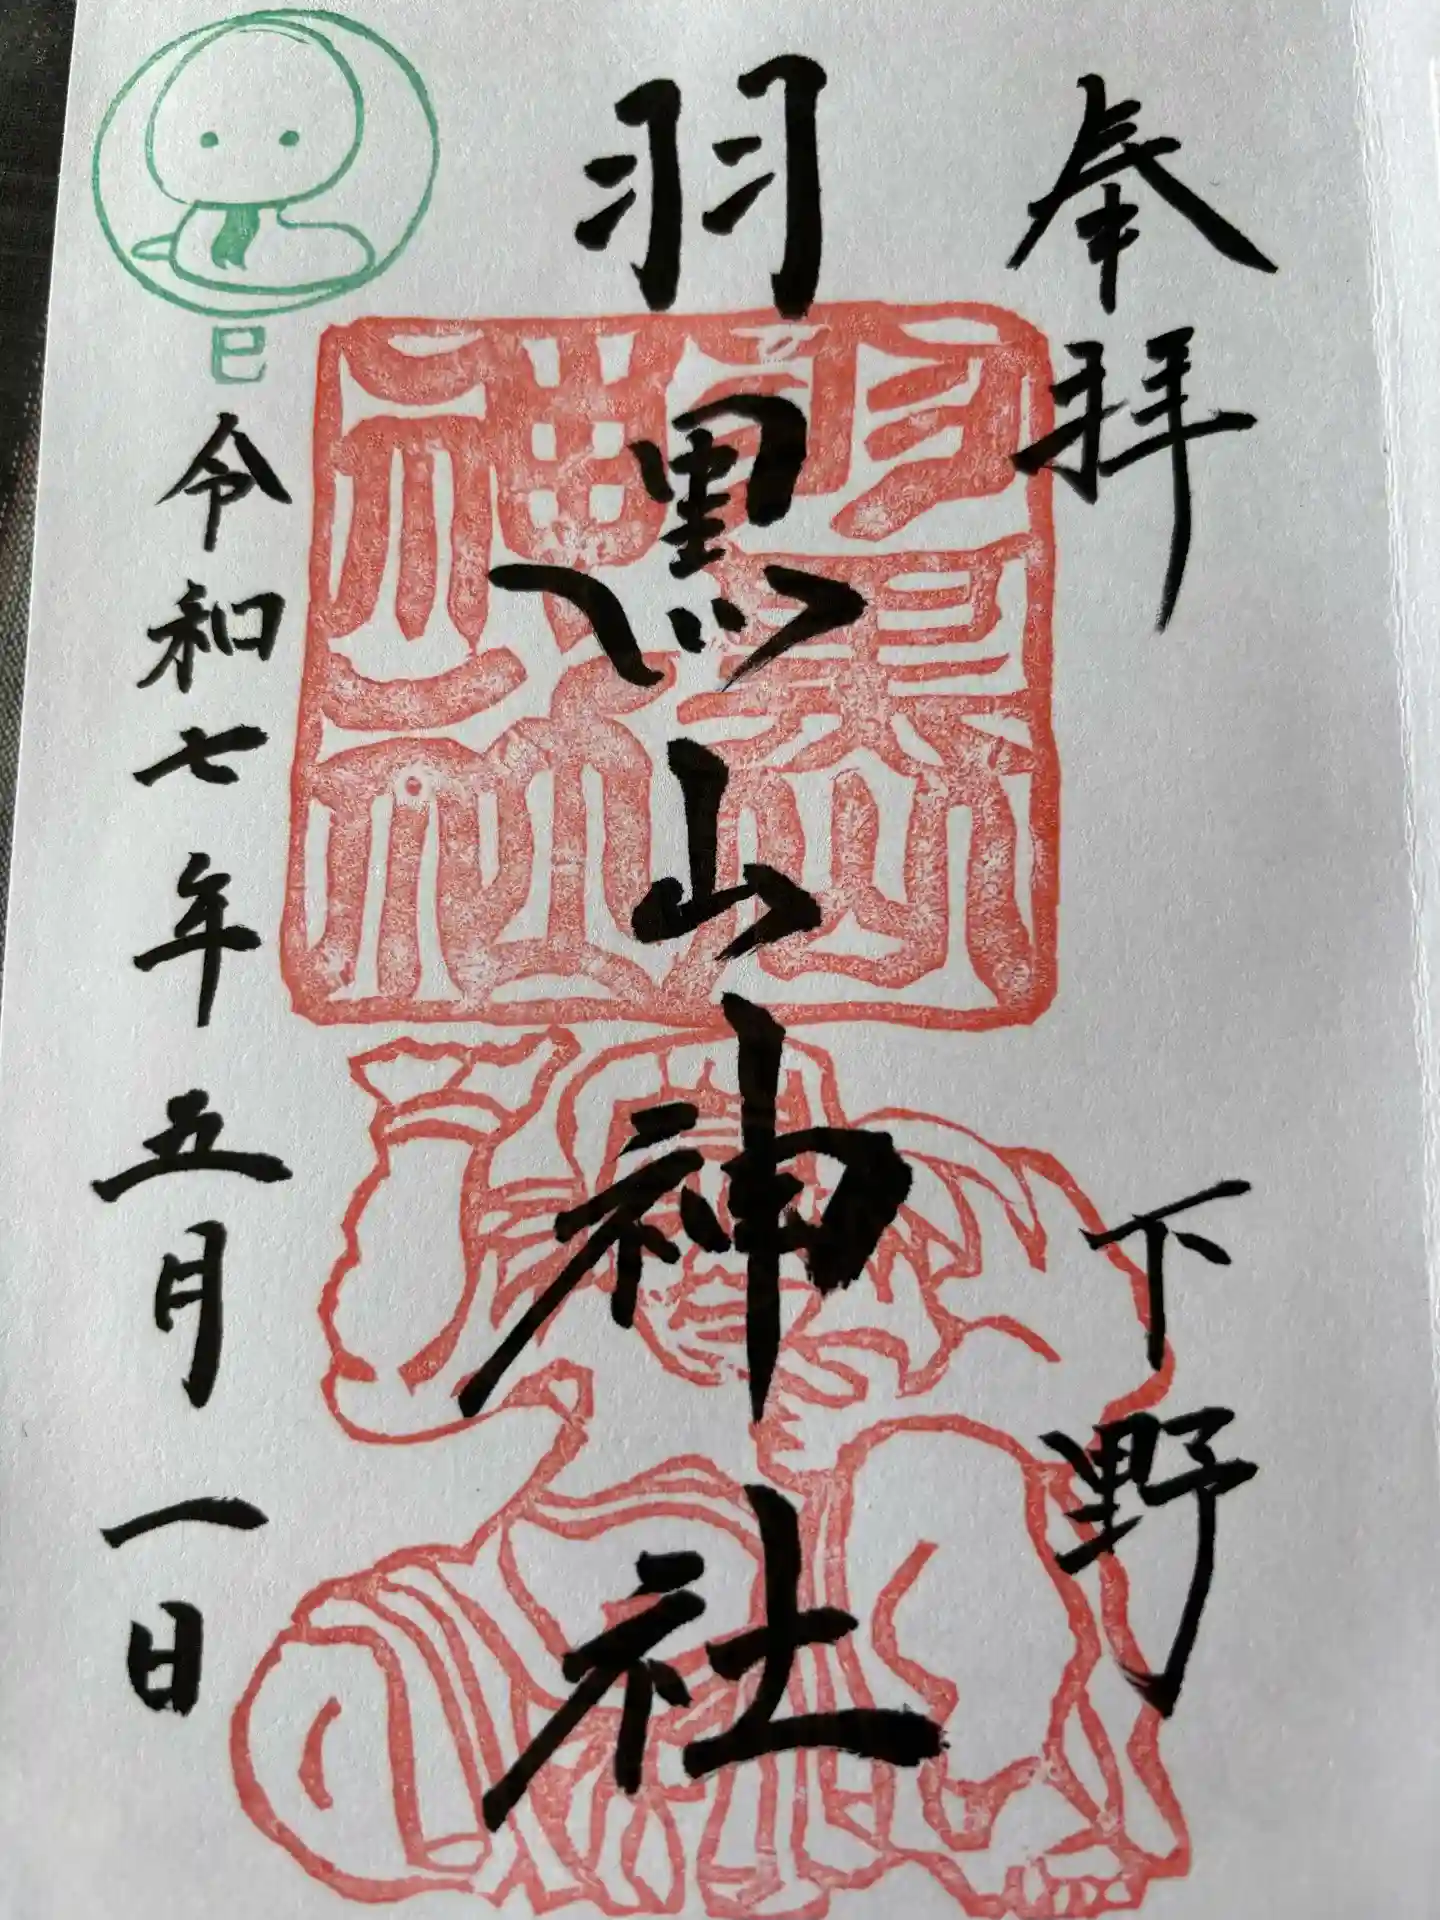 奉拝
下野
羽黒山神社
羽黒山
神社
巳
令和七年五月一日